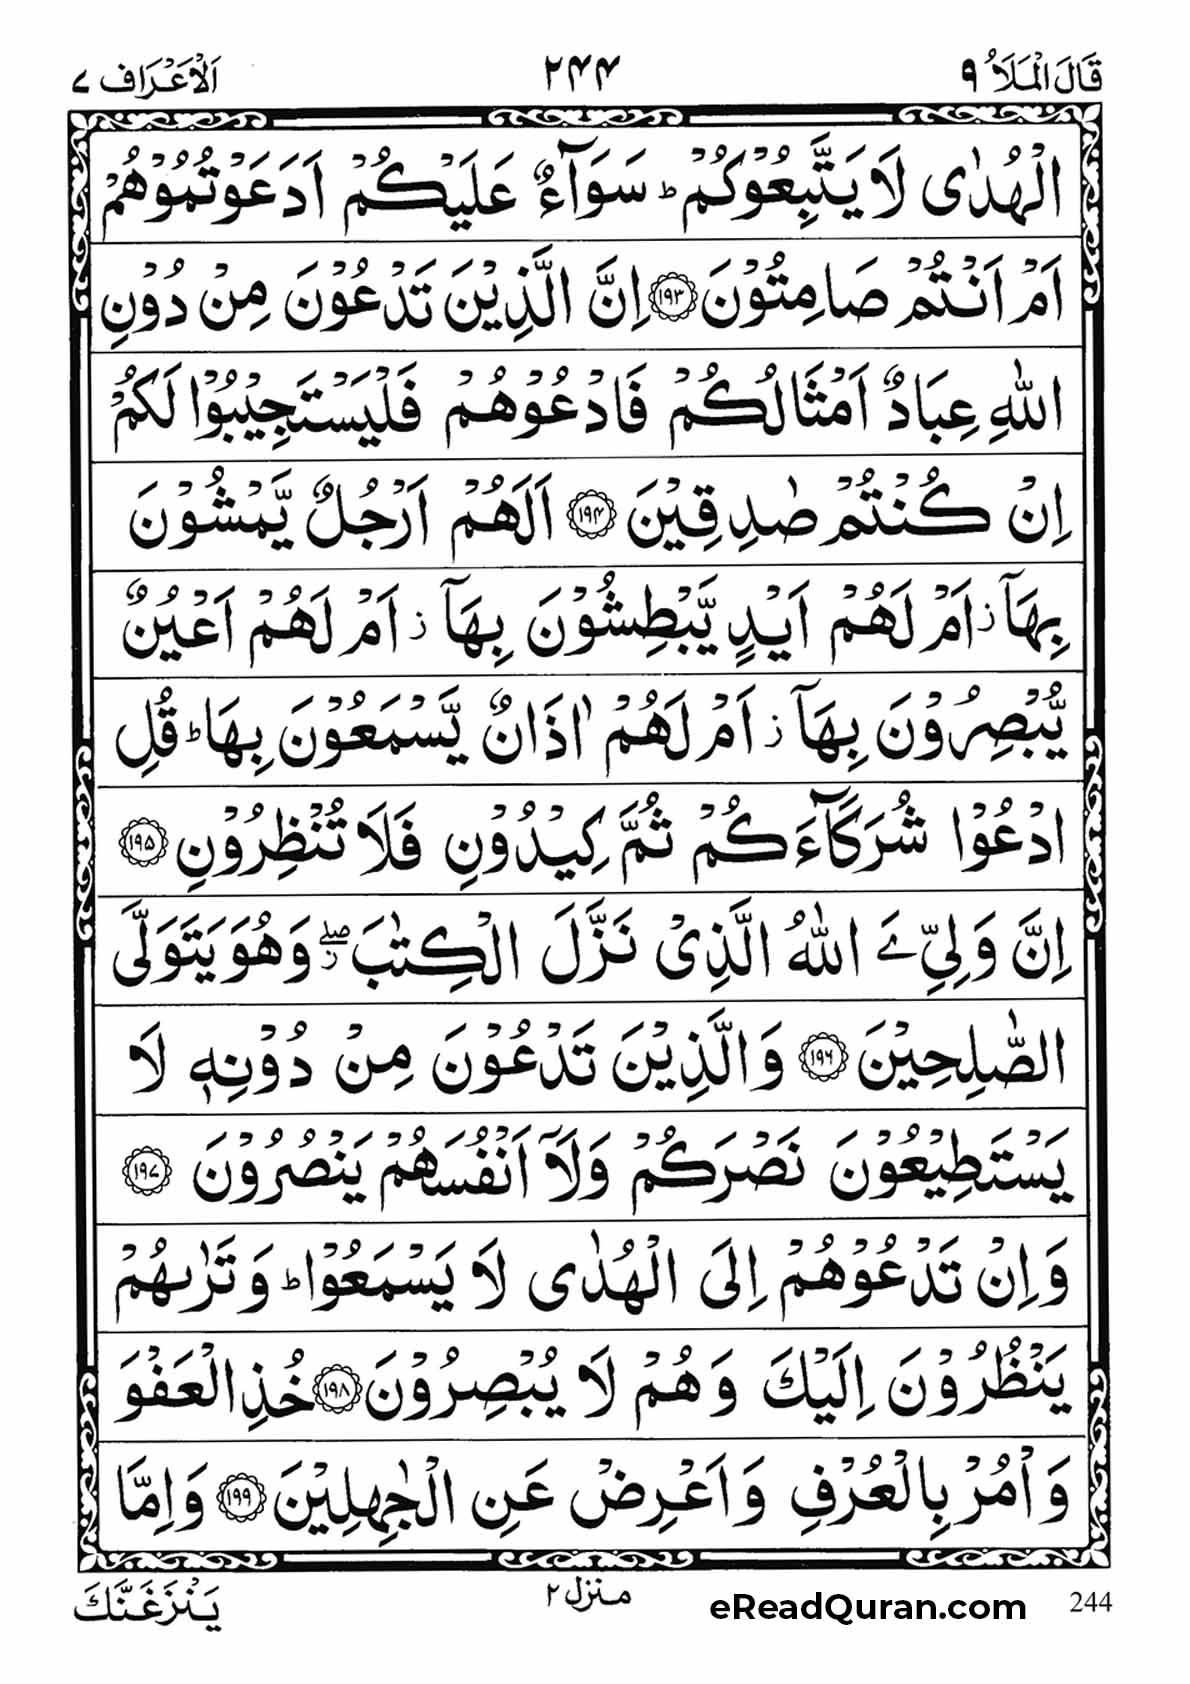 قَالَ الْمَلَاُ ٩
٢٤٤
اَلْاَعْرَاف ٧
الْهُدٰى لَا يَتَّبِعُوْكُمْ ؕ سَوَآءٌ عَلَيْكُمْ اَدَعَوْتُمُوْهُمْ
اَمْ اَنْتُمْ صَامِتُوْنَ ﴿۱۹۳﴾ اِنَّ الَّذِيْنَ تَدْعُوْنَ مِنْ دُوْنِ
اللّٰهِ عِبَادٌ اَمْثَالُكُمْ فَادْعُوْهُمْ فَلْيَسْتَجِيْبُوْا لَكُمْ
اِنْ كُنْتُمْ صٰدِقِيْنَ ﴿۱۹۴﴾ اَلَهُمْ اَرْجُلٌ يَّمْشُوْنَ
بِهَاۤ ؗ اَمْ لَهُمْ اَيْدٍ يَّبْطِشُوْنَ بِهَاۤ ؗ اَمْ لَهُمْ اَعْيُنٌ
يُّبْصِرُوْنَ بِهَاۤ ؗ اَمْ لَهُمْ اٰذَانٌ يَّسْمَعُوْنَ بِهَا ؕ قُلِ
ادْعُوْا شُرَكَآءَكُمْ ثُمَّ كِيْدُوْنِ فَلَا تُنْظِرُوْنِ ﴿۱۹۵﴾
اِنَّ وَلِيِّ َۧ اللّٰهُ الَّذِيْ نَزَّلَ الْكِتٰبَ ۖؗ وَهُوَ يَتَوَلَّى
الصّٰلِحِيْنَ ﴿۱۹۶﴾ وَالَّذِيْنَ تَدْعُوْنَ مِنْ دُوْنِهٖ لَا
يَسْتَطِيْعُوْنَ نَصْرَكُمْ وَلَاۤ اَنْفُسَهُمْ يَنْصُرُوْنَ ﴿۱۹۷﴾
وَاِنْ تَدْعُوْهُمْ اِلَى الْهُدٰى لَا يَسْمَعُوْا ؕ وَتَرٰىهُمْ
يَنْظُرُوْنَ اِلَيْكَ وَهُمْ لَا يُبْصِرُوْنَ ﴿۱۹۸﴾ خُذِ الْعَفْوَ
وَاْمُرْ بِالْعُرْفِ وَاَعْرِضْ عَنِ الْجٰهِلِيْنَ ﴿۱۹۹﴾ وَاِمَّا
يَنْزَغَنَّكَ
منزل ٢
eReadQuran.com
244